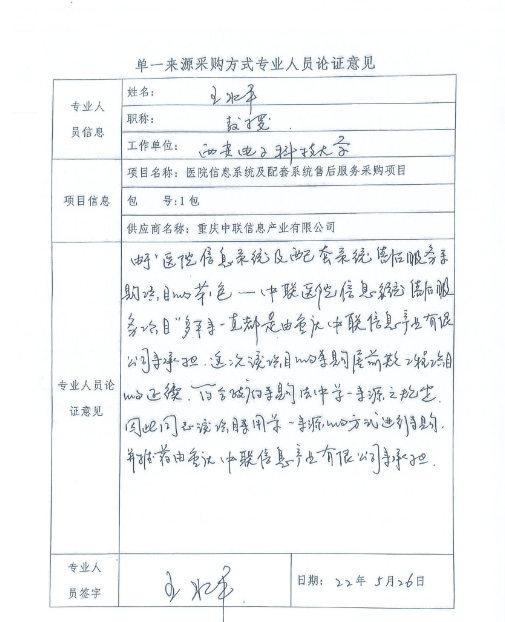 单一来源采购方式专业人员论证意见
专业人员信息
姓名：
职称：教授
工作单位：西安电子科技大学
项目信息
项目名称：医院信息系统及配套系统售后服务采购项目
包 号：1包
供应商名称：重庆中联信息产业有限公司
专业人员论证意见
由于“医院信息系统及配套系统售后服务采
购项目的第1包——中联医院信息系统售后服
务项目”多年来一直都是由重庆中联信息产业有限
公司来承担。这次该项目的采购属前期工程项目
的延续，符合政府采购法中单一来源之规定。
因此同意该项目采用单一来源的方式进行采购，
并推荐由重庆中联信息产业有限公司来承担。
专业人员签字
日期：22年5月26日